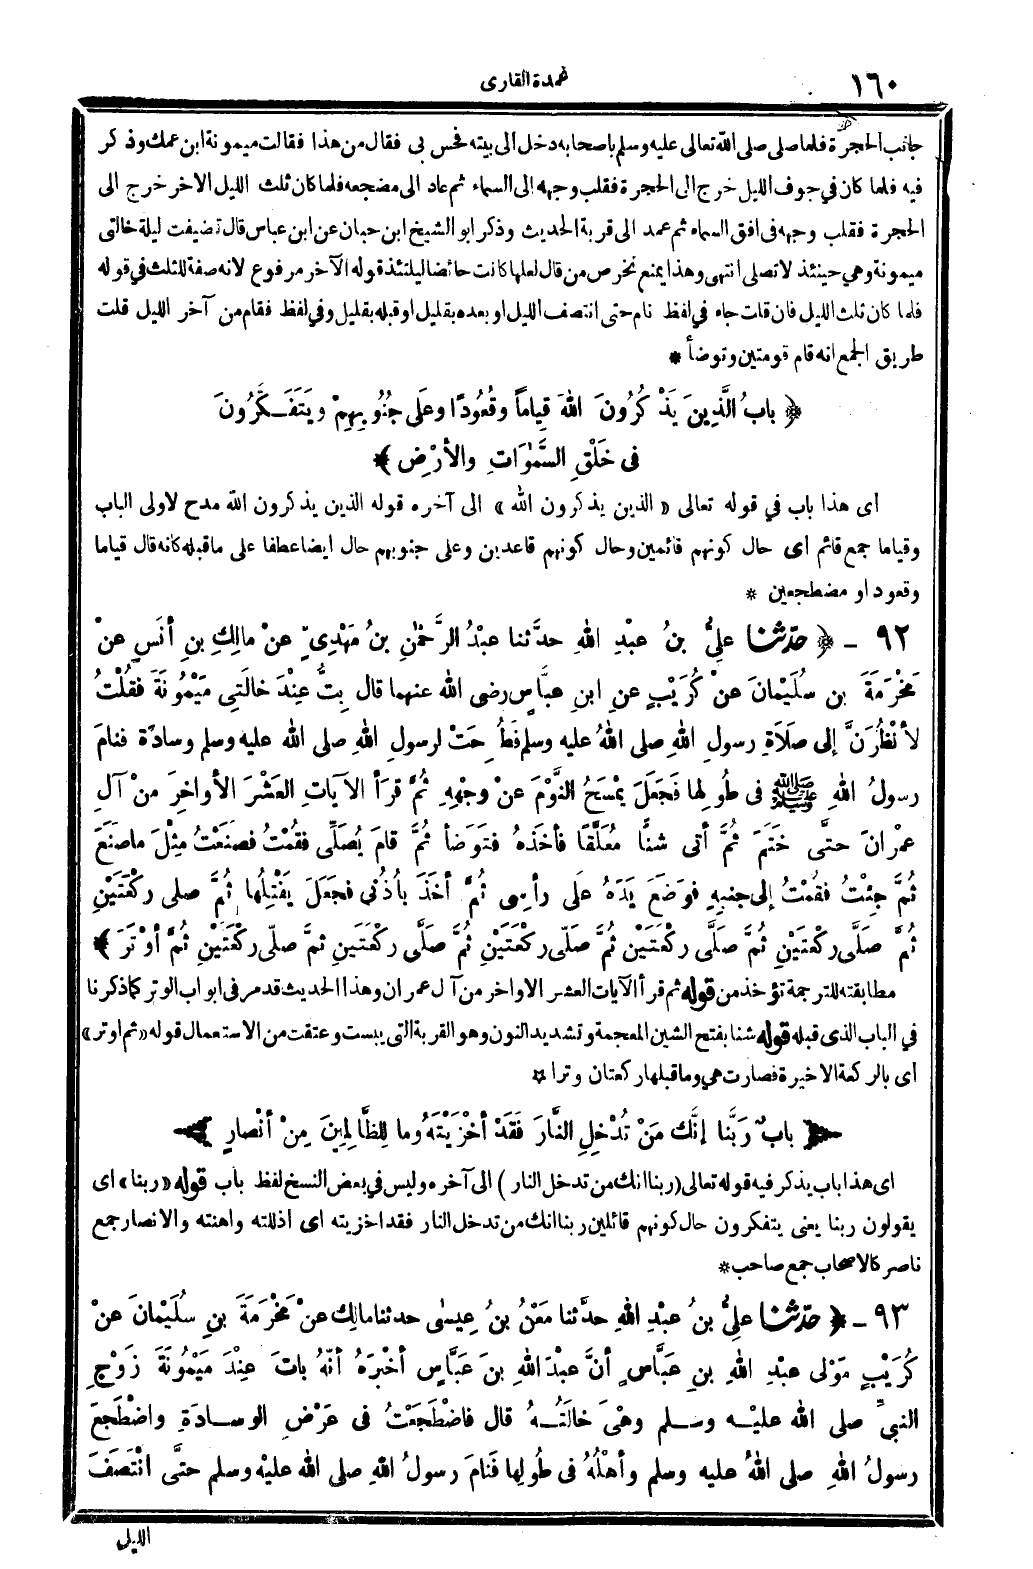 ١٦٠
عمدة القارى
جانب الحجرة فلما صلى صلى الله تعالى عليه وسلم باصحابه دخل الى بيته فحس بى فقال من هذا فقالت ميمونة ابن عمك وذكر
فيه فلما كان في جوف الليل خرج الى الحجرة فقلب وجهه إلى السماء ثم عاد الى مضجعه فلما كان ثلث الليل الاخر خرج الى
الحجرة فقلب وجهه فى افق السماء ثم عمد الى قربة الحديث وذكر ابو الشيخ ابن حبان عن ابن عباس قال تضيفت ليلة خالتى
ميمونة وهي حينئذ لا تصلى انتهى وهذا يمنع تخرص من قال لعلها كانت حائضا ليلتئذ قوله الآخر مرفوع لانه صفة للثلث في قوله
فلما كان ثلث الليل فان قلت جاء في لفظ نام حتى انتصف الليل او بعده بقليل او قبله بقليل وفي لفظ فقام من آخر الليل قلت
طريق الجمع انه قام قومتين وتوضأ *
﴿ بابُ الَّذِينَ يَذْكُرُونَ اللهَ قِياماً وقُعُودًا وعَلى جُنُوبِهِمْ ويَتَفَـكَّرُونَ
فى خَلْقِ السَّمٰوَاتِ والأرْضِ ﴾
اى هذا باب في قوله تعالى «الذين يذكرون الله» الى آخره قوله الذين يذكرون الله مدح لاولى الباب
وقياما جمع قائم اى حال كونهم قائمين وحال كونهم قاعدين وعلى جنوبهم حال ايضا عطفا على ما قبله كانه قال قياما
وقعودا و مضطجعين *
٩٢ - ﴿ حدّثنا عليُّ بنُ عبْدِ اللهِ حدَّثنا عبْدُ الرَّحْمٰنِ بنُ مَهْدِىٍّ عنْ مالِكِ بنِ أنَسٍ عنْ
مَخْرَمَةَ بنِ سُلَيْمانَ عنْ كُرَيْبٍ عنِ ابنِ عبَّاسٍ رضى الله عنهما قال بِتُّ عِنْدَ خالَتِي مَيْمُونَةَ فقُلْتُ
لأنْظُرَنَّ إلى صلَاةِ رسولِ اللهِ صلى اللهُ عليه وسلم فَطُرِحَتْ لرسولِ اللهِ صلى الله عليه وسلم وسادَة فنامَ
رسولُ اللهِ ﷺ فى طُولِها فَجَعَلَ يمْسَحُ النَّوْمَ عنْ وجْهِهِ ثُمَّ قرَأ الآياتِ العَشْرَ الأواخِرَ منْ آلِ
عِمْرانَ حتَّى خَتَمَ ثُمَّ أتى شنًّا مُعَلَّقًا فأخَذَهُ فتَوَضأ ثُمَّ قامَ يُصَلِّى فقُمْتُ فصَنَعْتُ مِثْلَ ماصَنَعَ
ثُمَّ جِئْتُ فقُمْتُ إلى جنبِهِ فوَضَعَ يَدَهُ عَلى رأسِى ثُمَّ أخَذَ بأذُنى فجَعَلَ يَفْتِلُها ثُمَّ صلى ركْعَتَيْنِ
ثُمَّ صَلَّى ركْعَتَيْنِ ثُمَّ صَلَّى ركْعَتَيْنِ ثُمَّ صَلّى ركْعَتَيْنِ ثُمَّ صَلَّى ركْعَتَينِ ثمَّ صلّى ركْعَتَيْنِ ثُمَّ أوْتَرَ ﴾
مطابقته للترجمة تؤخذ من قوله ثم قرأ الآيات العشر الاواخر من آل عمران وهذا الحديث قد مر فى ابواب الوتر كما ذكرنا
في الباب الذى قبله قوله شنا بفتح الشين المعجمة وتشديد النون وهو القربة التى يبست وعتقت من الاستعمال قوله «ثم اوتر»
اى بالركعة الاخيرة فصارت هي وما قبلها ركعتان وترا *
﴿ بابٌ رَبَّنا إنَّكَ مَنْ تُدْخِلِ النَّارَ فَقَدْ أخْزَيْتَهُ وما لِلظَّالِمِينَ مِنْ أنْصارٍ ﴾
اى هذا باب يذكر فيه قوله تعالى (ربنا انك من تدخل النار) الى آخره وليس في بعض النسخ لفظ باب قوله «ربنا» اى
يقولون ربنا يعنى يتفكرون حال كونهم قائلين ربنا انك من تدخل النار فقد اخزيته اى اذللته واهنته والانصار جمع
ناصر كالاصحاب جمع صاحب *
٩٣ - ﴿ حدّثنا عليُّ بنُ عبْدِ اللهِ حدَّثنا مَعْنُ بنُ عِيسٰى حدثنا مالِك عنْ مَخْرَمَةَ بنِ سُلَيْمانَ عنْ
كُرَيْبٍ مَوْلى عبْدِ اللهِ بنِ عَبَّاسٍ أنَّ عبْدَ اللهِ بنَ عَبَّاسٍ أخْبَرَهُ أنّهُ باتَ عِنْدَ مَيْمُونَةَ زَوْجِ
النبيِّ صلى الله عليْـه وسَـلم وهْىَ خالَتُـهُ قال فاضْطَجَعْتُ فى عَرْضِ الوِسـادَةِ واضْطَجعَ
رسولُ اللهِ صلى اللهُ عليه وسلم وأهْلُهُ فى طُولِها فَنامَ رَسولُ اللهِ صلى الله عليْه وسلم حتَّى انْتَصَفَ
الليل